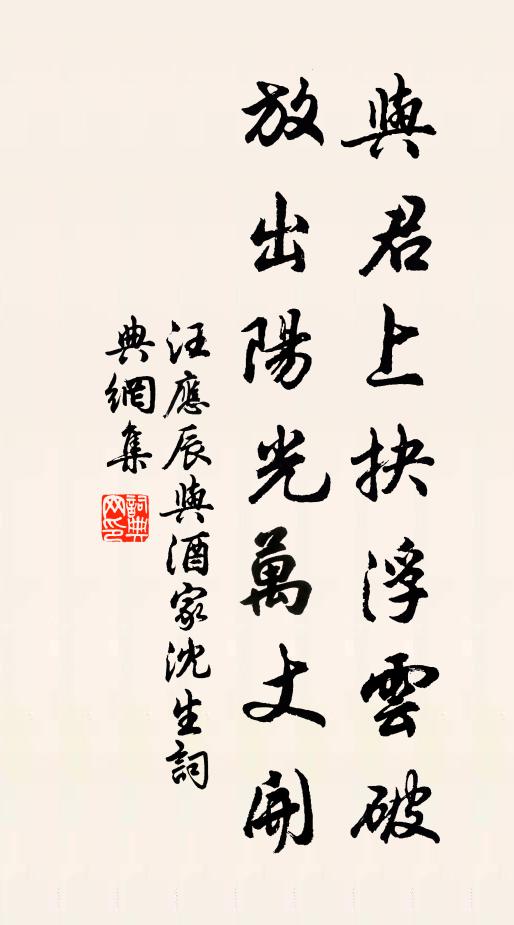 與君上抉浮雲破
放出陽光萬丈開
汪應辰與酒家沈生詞
典網集
詞典
网印